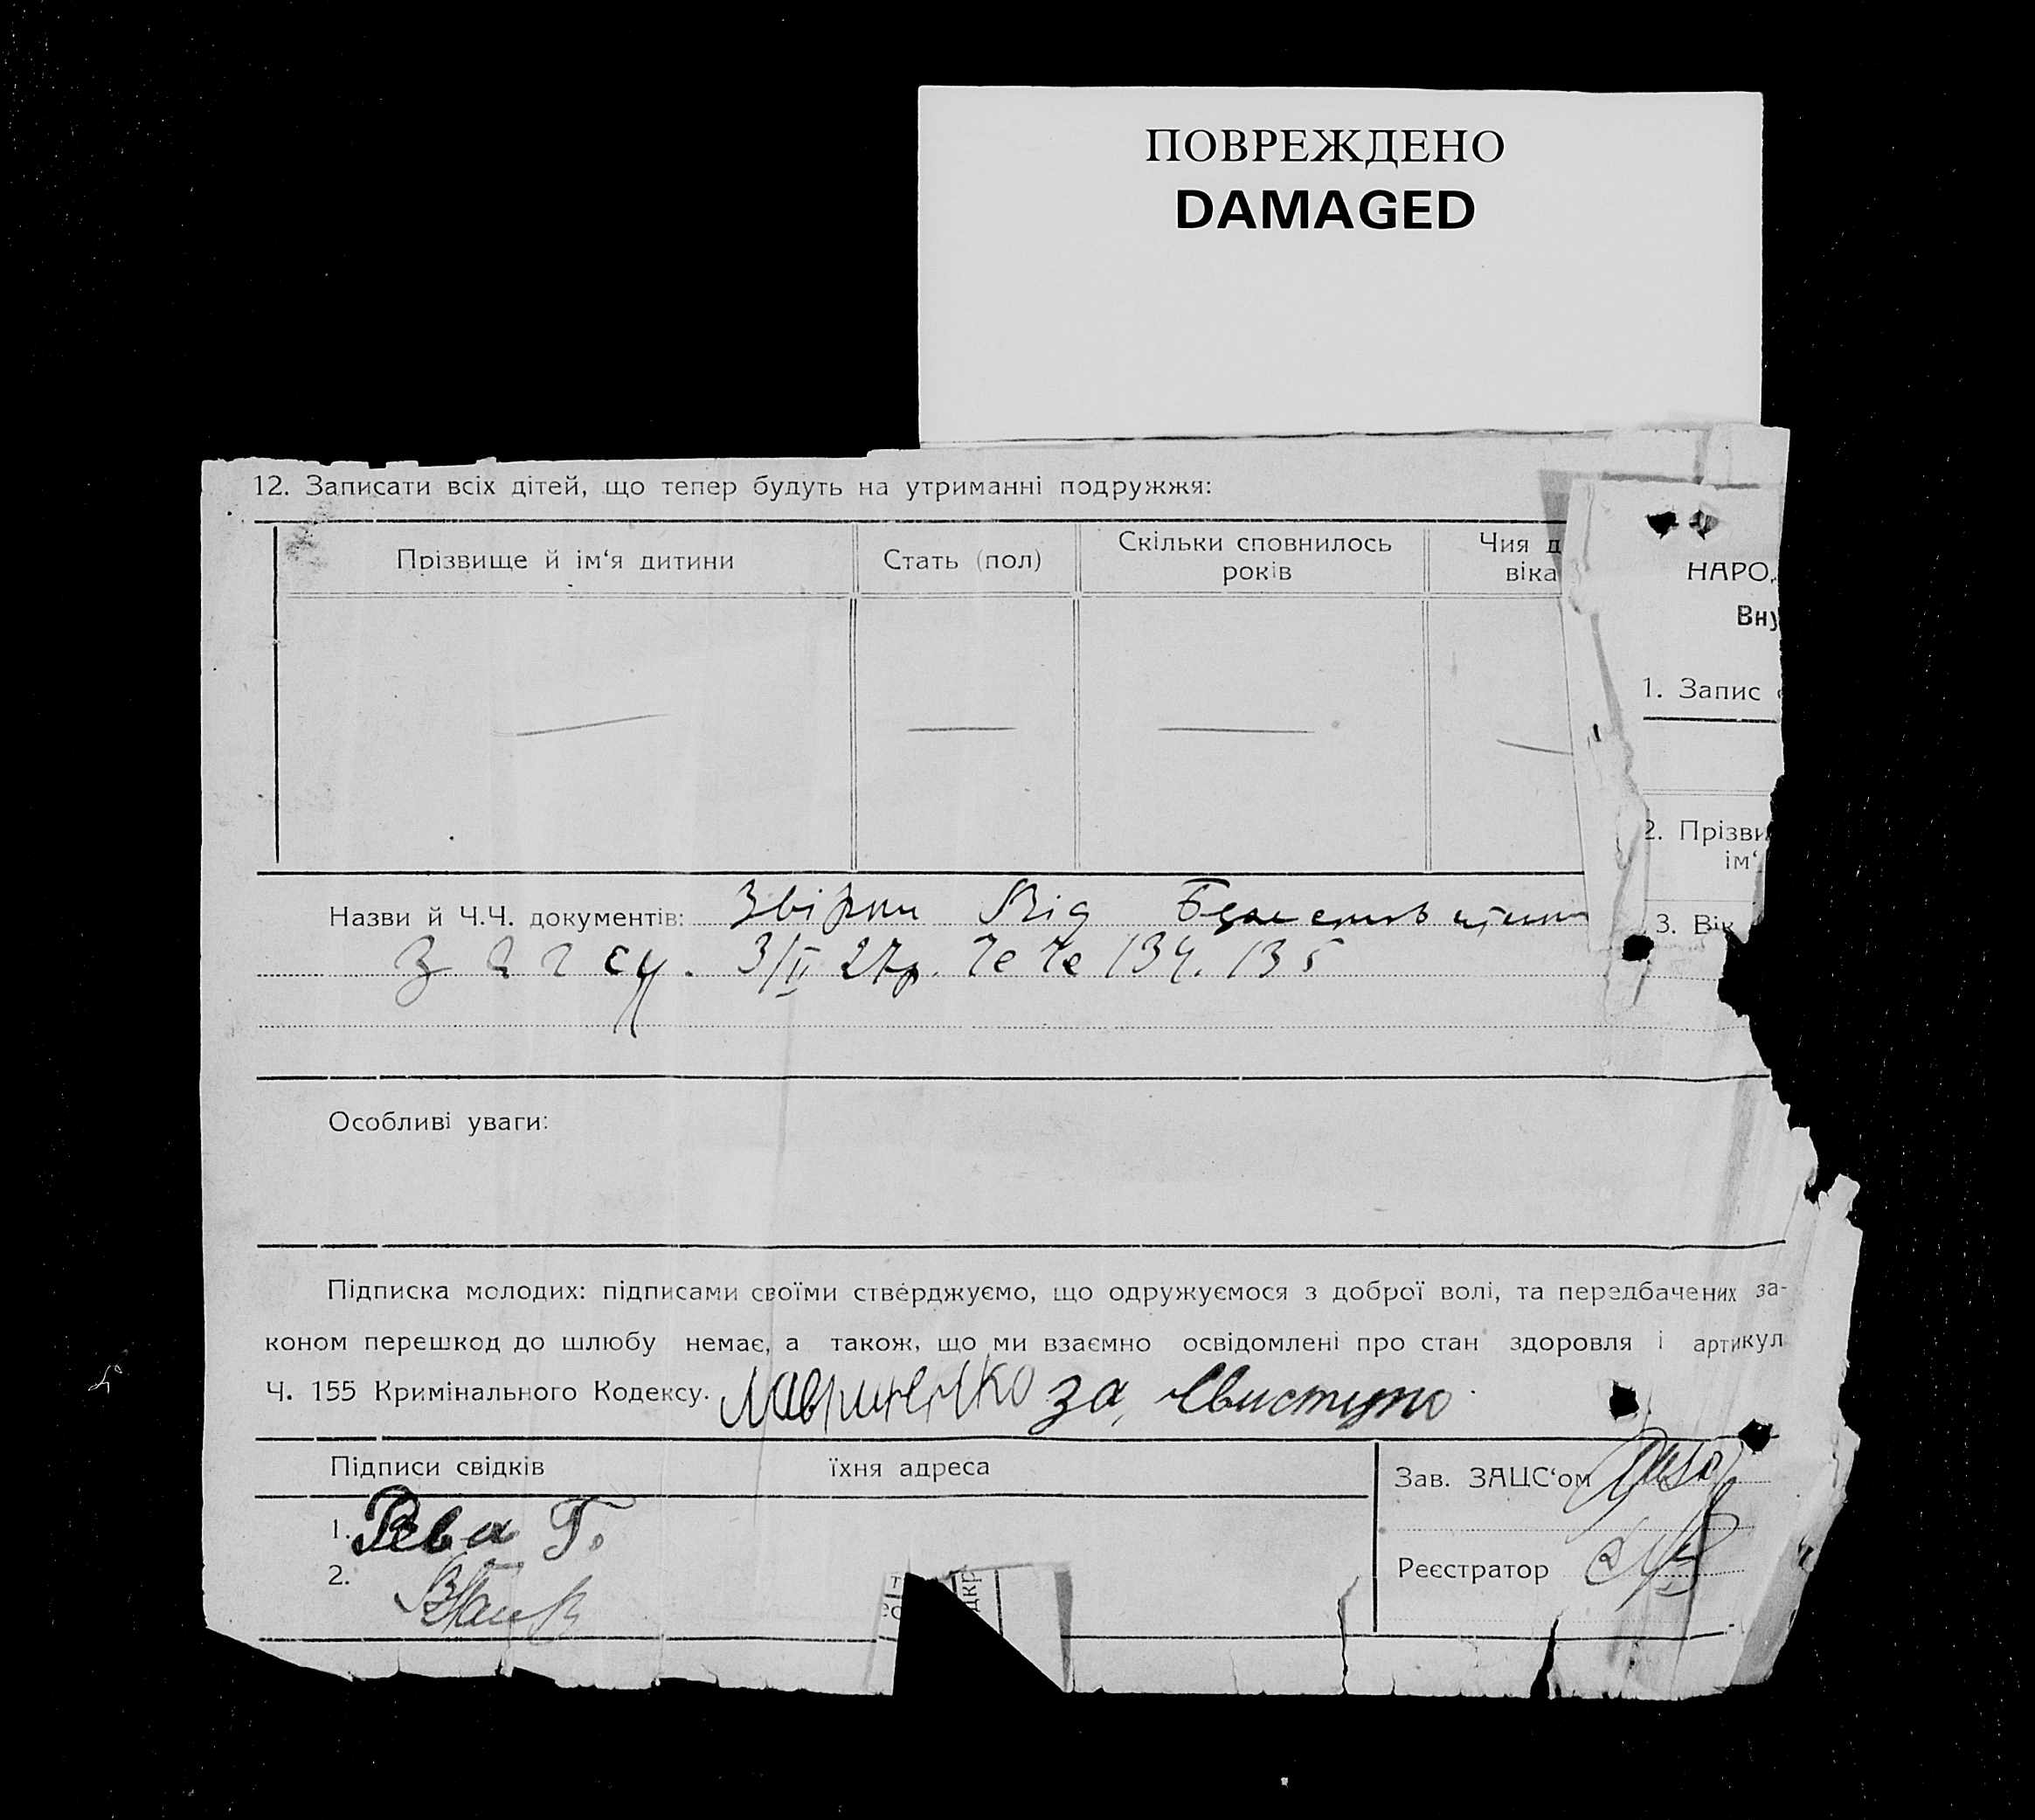 ПОВРЕЖДЕНО
DAMAGED
12. Записати всіх дітей, що тепер будуть на утриманні подружжя:
Прізвище й ім‘я дитини
Стать (пол)
Скільки сповнилось
років
Чия д
віка
НАРО
Вну
1. Запис
2. Прізви
ім‘
3. Вік
Назви й Ч.Ч. документів: Від
загсу. 3/II 27р. №№ 134. 135
Особливі уваги:
Підписка молодих: підписами своїми стверджуємо, що одружуємося з доброї волі, та передбачених за-
коном перешкод до шлюбу немає, а також, що ми взаємно освідомлені про стан здоровля і артикул
Ч. 155 Кримінального Кодексу. Лавриненко за
Підписи свідків їхня адреса
Зав. ЗАЦС‘ом
1. Рева Г.
2.
Реєстратор